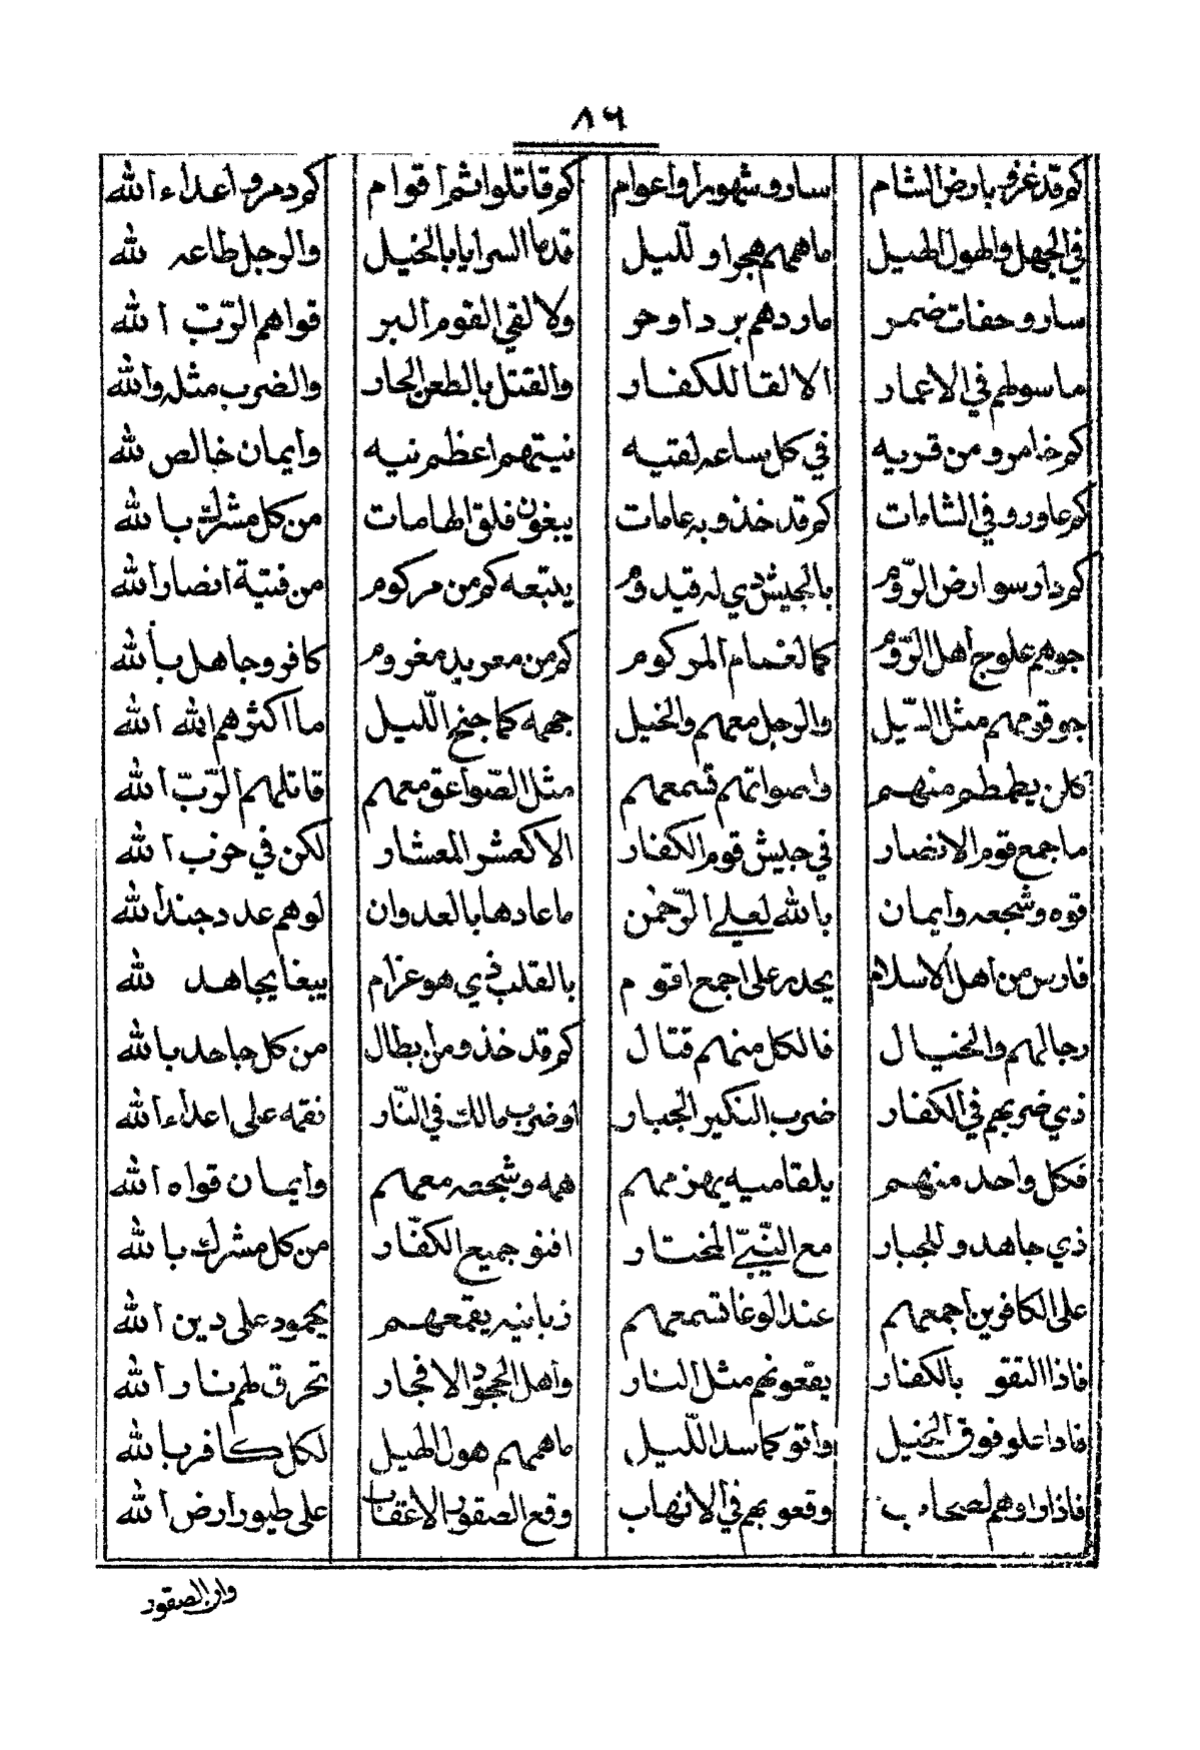 ٨٦
كم قد غزو بارض الشام سارو شهورا واعوام كم قاتلوا ثم اقوام كم دمرو اعداء الله
في الجهل والهول الهيل ما همهم هجرا و لليل قدما السرايا بالخيل والوجل طاعه لله
سارو حفات ضمر ما ردهم برد او حر ولا لقي القوم البر قواهم الرّب الله
ما سولهم في الاعمار الا لقا للكفار والقتل بالطعن الحار والضرب مثله والله
كم خامرو من قريه في كل ساعه لقتيه نيتهم اعظم نيه وايمان خالص لله
كم عاورو في الشامات كم قد خذو به عامات يبغون فلق الهامات من كل مشرك بالله
كم دارسو ارض الرّوم بالجيش ذي له قيدوم يتبعه كم من مركوم من فتية انصار الله
جوهم علوج اهل الرّوم كما لغمام المركوم كم من معربد مغروم كافر وجاهل بالله
جو قومهم مثل السّيل والوجل معهم والخيل جهمه كما جنح اللّيل ما اكثرهم الله الله
كلن يطمطم منهم واصواتهم تسمعهم مثل الصّواعق معهم قاتلهم الرّبّ الله
ما جمع قوم الانصار في جيش قوم الكفار الا كعشر المعشار لكن في حزب الله
قوه وشجعه وايمان بالله لعلي الرّحمٰن ما عادها بالعدوان لوهم عدد جند الله
فارس من اهل الاسلام يحدر على اجمع اقوم بالقلب ذي هو عزام يبغا يجاهد لله
رجالهم والخيال فالكل منهم قتال كم قد خذو من ابطال من كل جاحد بالله
ذي ضربهم في الكفار ضرب النكير الجبار او ضرب مالك في النّار نقمه على اعداء الله
فكل واحد منهم يلقا ميه يهزمهم همه وشجعه معهم وايمان قواه الله
ذي جاهدو للجبار مع النّبيّ المختار افنو جميع الكفّار من كل مشرك بالله
على الكافرين اجمعهم عند الوغا تسمعهم زبانيه يقمعهم يحمو على دين الله
فاذا التقو بالكفار يقعونهم مثل النار واهل الجحود الافجار تحرق لهم نار الله
فاذا علو فوق الخيل واتو كما سد اللّيل ما همهم هول الهيل لكل كافر بالله
فاذا راوهم لصحاب وقعو بهم في الانهاب وقع الصقور الاعقاب على طيور ارض الله
وان الصقور